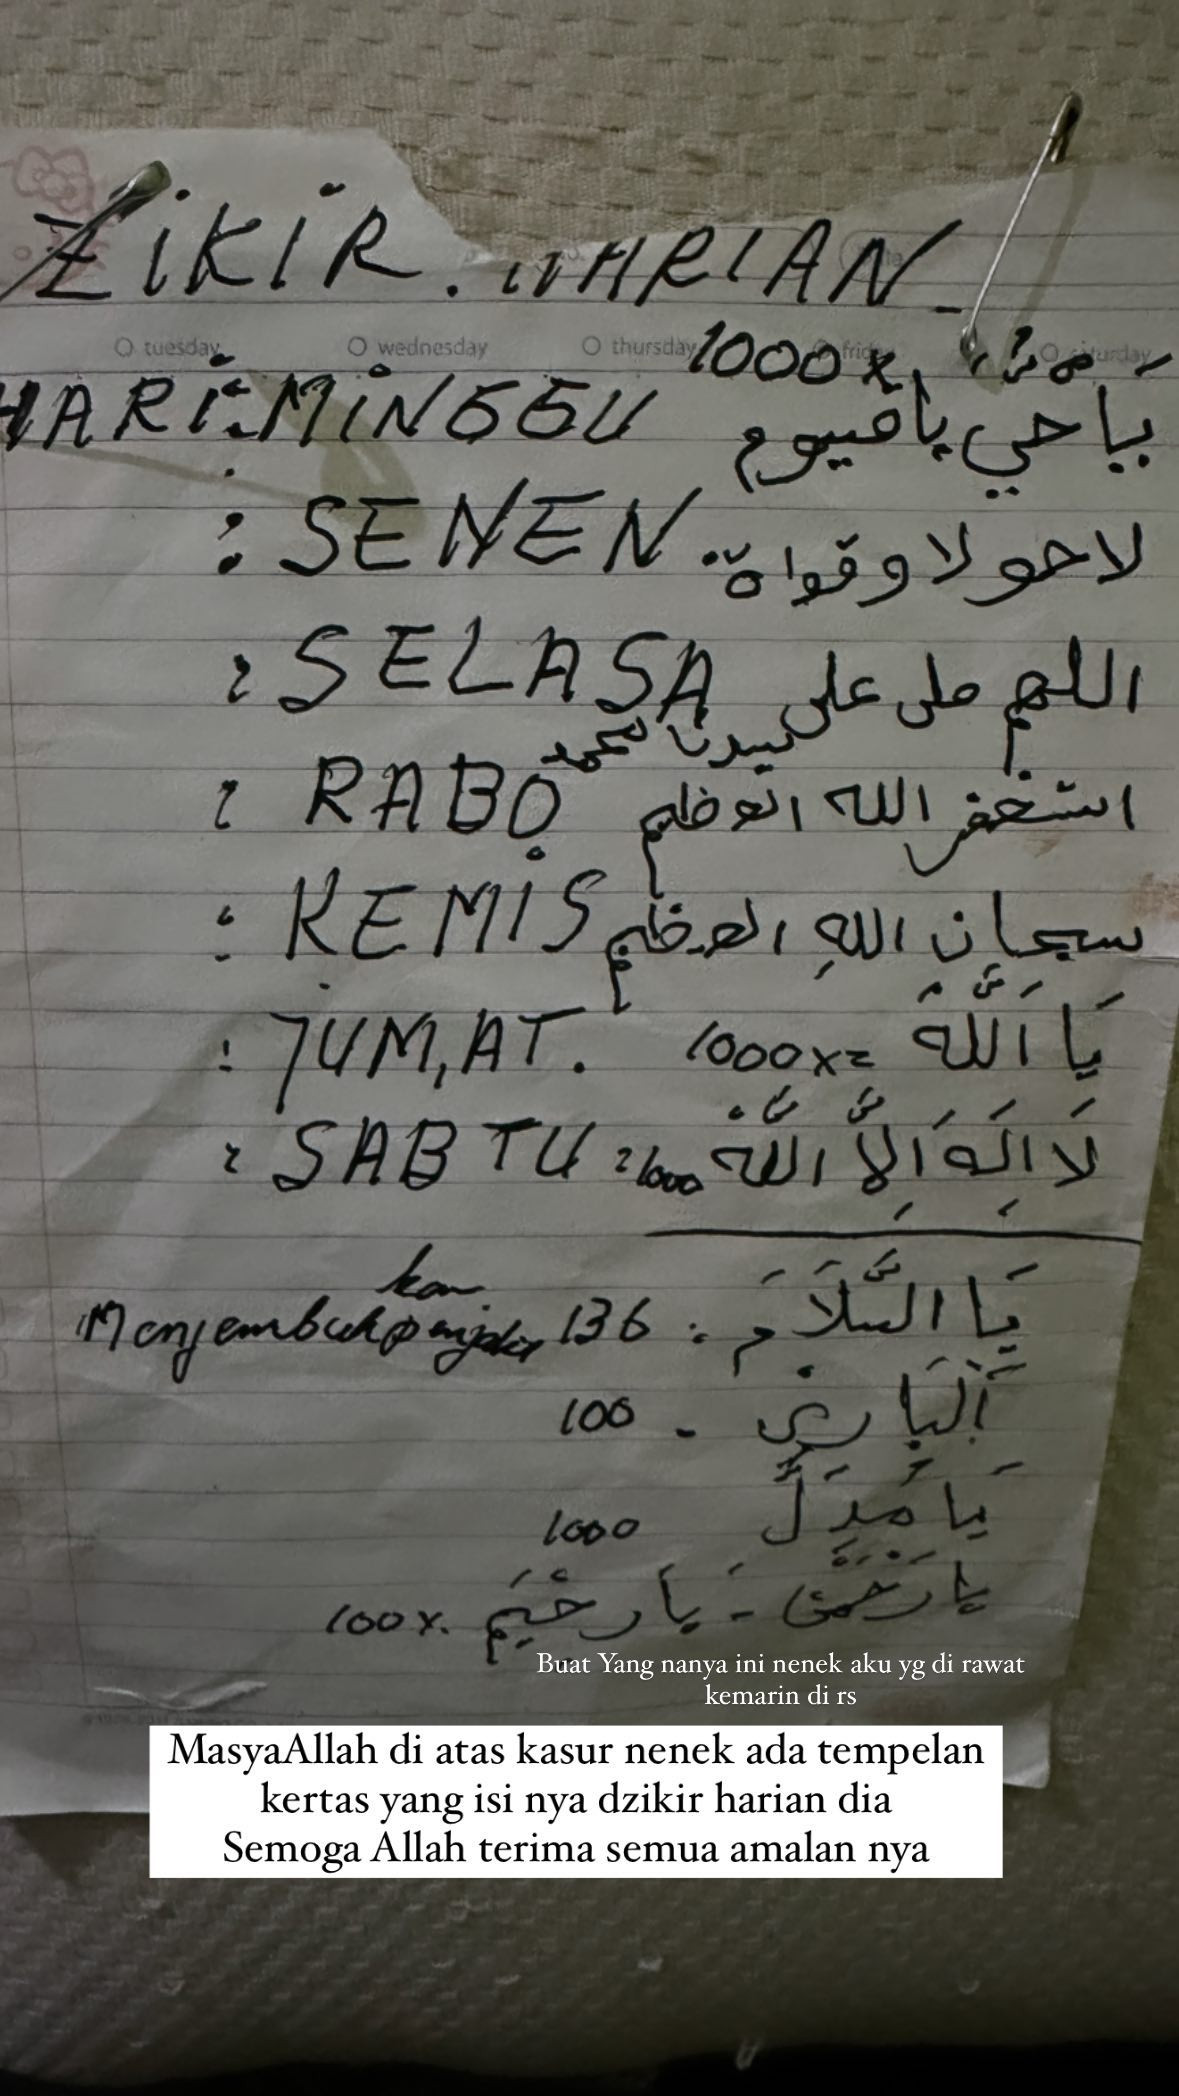 ZIKIR. HARIAN
tuesday wednesday thursday friday saturday
1000 x
HARI: MINGGU ياحي ياقيوم
: SENEN لا حو لا وقواة
: SELASA اللهم صلى على
سيدنا محمد
: RABO استغفر الله العظيم
: KEMIS سبحان الله العظيم
: JUM,AT. 1000 x = يَا اَللّٰهُ
: SABTU : 1000 لَا اِلٰهَ اِلَّا اللّٰهُ
kan
Menyembuh penyakit 136 : يَا السَّلَامَ
100 - اَلْبَارِئُ
1000 يَا مُذِلَّ
100 x. يَارَحْمٰنْ - يَارَحِيْمَ
Buat Yang nanya ini nenek aku yg di rawat
kemarin di rs
MasyaAllah di atas kasur nenek ada tempelan
kertas yang isi nya dzikir harian dia
Semoga Allah terima semua amalan nya